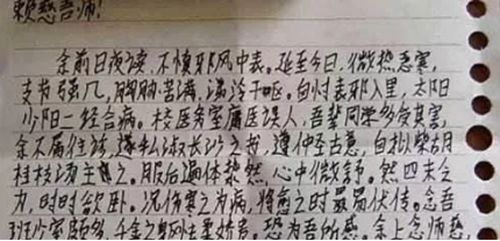 赖慈吾师!
余前日夜读,不慎邪风中表。延至今日,微热恶寒,
支节强几,胸胁苦满,满泛干呕。自忖表邪入里,太阳
少阳一经合病。校医务室庸医误人,吾辈同学多受其害,
余不屑往诊,遂私淑长沙之哉,遵仲圣古意,自拟柴胡
桂枝汤主之。服后遍体漐然,心中微舒。然四末乏
力,时时欲卧。况伤寒之为病,将愈之时最易伏传。念吾
班少室颇多,千金之躯性柔娇
恐为吾所感。余上念师慈,